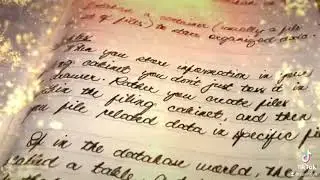 a container (usually a file
of files) to store organized data.
Then you store information in your
ng cabinet you don't just toss it in
drawer. Rather you create files
within the filing cabinet, and then
you file related data in specific
in the database world, the
called a table.
TikTok